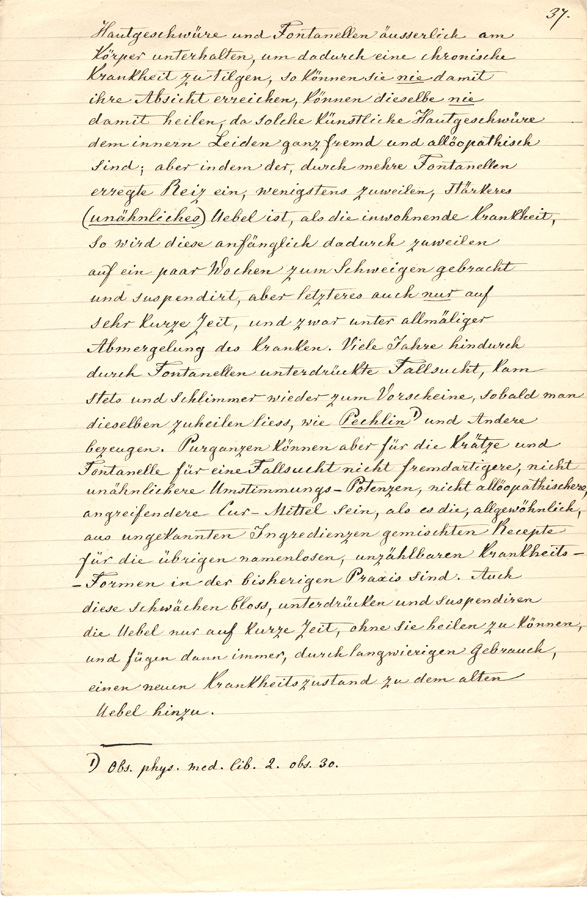 37.
Hautgeschwüre und Fontanellen äusserlich am
Körper unterhalten, um dadurch eine chronische
Krankheit zu tilgen, so können sie nie damit
ihre Absicht erreichen, können dieselbe nie
damit heilen, da solche künstliche Hautgeschwüre
dem innern Leiden ganz fremd und allöopathisch
sind; aber indem der, durch mehre Fontanellen
erregte Reiz ein, wenigstens zuweilen, stärkeres
(unähnliches) Uebel ist, als die inwohnende Krankheit,
so wird diese anfänglich dadurch zuweilen
auf ein paar Wochen zum Schweigen gebracht
und suspendirt, aber letzteres auch nur auf
sehr kurze Zeit, und zwar unter allmäliger
Abmergelung des Kranken. Viele Jahre hindurch
durch Fontanellen unterdrückte Fallsucht, kam
stets und schlimmer wieder zum Vorscheine, sobald man
dieselben zuheilen liess, wie Pechlin 1) und Andere
bezeugen. Purganzen können aber für die Krätze und
Fontanelle für eine Fallsucht nicht fremdartigere, nicht
unähnlichere Umstimmungs-Potenzen, nicht allöopathischere,
angreifendere Cur-Mittel sein, als es die, allgewöhnlich,
aus ungekannten Ingredienzen gemischten Recepte
für die übrigen namenlosen, unzählbaren Krankheits-
-Formen in der bisherigen Praxis sind. Auch
diese schwächen bloss, unterdrücken und suspendiren
die Uebel nur auf kurze Zeit, ohne sie heilen zu können,
und fügen dann immer, durch langwierigen Gebrauch,
einen neuen Krankheitszustand zu dem alten
Uebel hinzu.
1) Obs. phys. med. lib. 2. obs. 30.